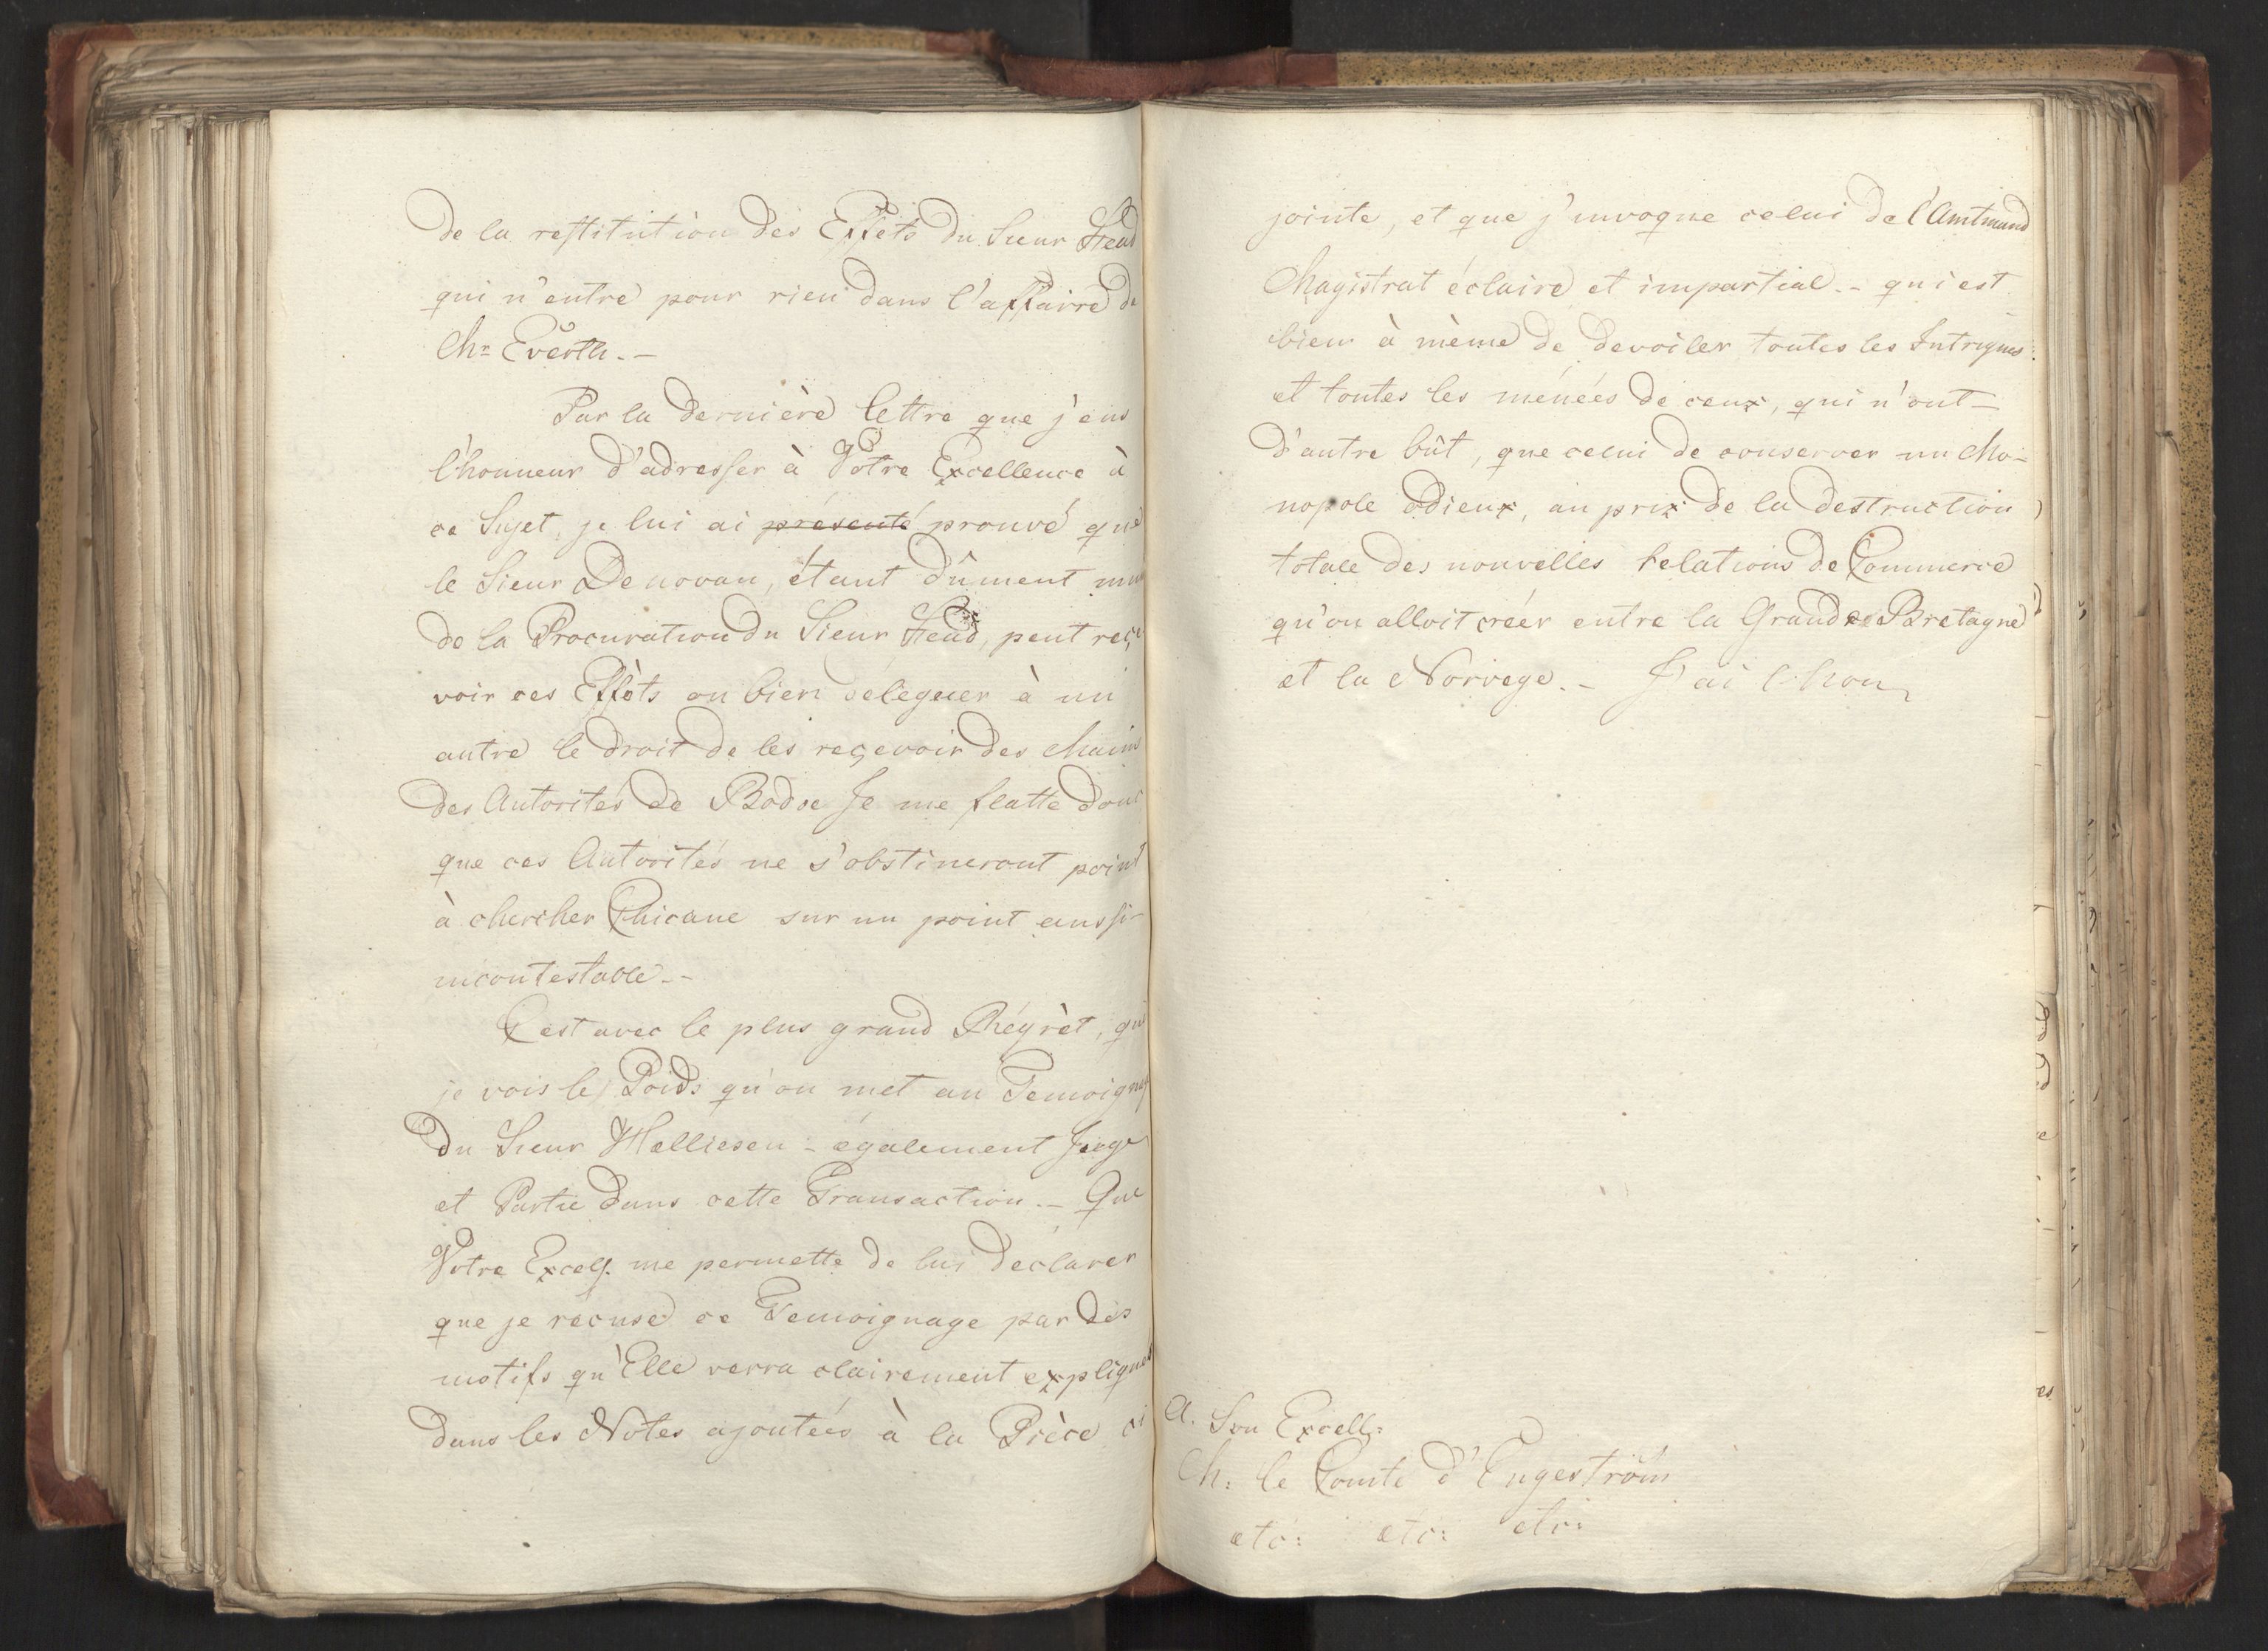 de la restitution des Effets du Sieur Head
qui n'entre pour rien dans l'affaire de
Mr Everth. -
Par la dernière lettre que j'eus
l'honneur d'adresser à Votre Excellence à
ce Sujet, je lui ai présenté prouvé que
le Sieur Denovan, étant dûment muni
de la Procuration du Sieur Head, peut reçe
voir ces Effèts ou bien déléguer à un
autre le droit de les reçevoir des Mains
des Autorités de Bodoe Je me flatte donc
que ces Autorités ne s'obstineront point
à chercher Chicane sur un point aussi-
incontestable. -
C'est avec le plus grand Régrèt, que
je vois le Poids qu'on met au Temoignage
du Sieur Halliesen - également Juge
et Partie dans cette Transaction. - Que
Votre Excell. me permette de lui declarer
que je recuse ce Temoignage par des
motifs qu'Elle verra clairement expliqués
dans les Notes ajoutées à la Pièce ci
jointe, et que j'invoque celui de l'Amtmand
Magistrat éclairé et impartial. - qui est
bien à mème de devoiler toutes les Intrigues
et toutes les menées de ceux, qui n'ont -
d'autre bût, que celui de conserver un Mo-
nopole odieux, au prix de la destruction
totale des nouvelles relations de Commerce
qu'on alloit créer entre la Grande Bretagne
et la Norvege. - J'ai l'hon
A. Son Excell:
M: le Comte d'Engeström
etc: etc: etc: